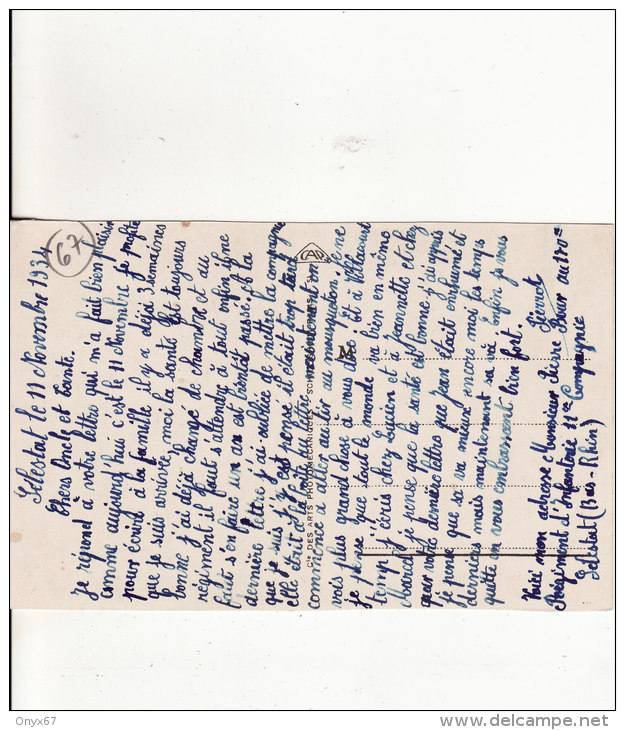 Sélestat le 11 Novembre 1934
67
Chers Oncle et Tante.
Je répond à votre lettre qui m'a fait bien plaisir
comme aujourd'hui c'est le 11 Novembre je profite
pour écrire à la famille il y a déjà 3 semaines
que je suis arrivée moi la santé est toujours
bonne j'ai déjà changé de chambre et du
régiment il faut s'attendre à tout enfin igne
faut s'en faire un an est bientôt passé à la
dernière lettre j'ai oubliée de mettre la compagnie
que je suis j'y est pense il était trop tard
elle était à la boîte au lettre maintenant on
commence a aller au tir au mousqueton. Je ne
vois plus grand chose à vous dire et à Villacourt
je pense que tout le monde va bien en même
temp j'écris chez Lucien et à Jeannette et chez
Marcel je pense que la santé est bonne, j'ai appris
par votre dernière lettre que Jean était enrhumé et
je pense que se va mieux encore moi les temps
derniers mais maintenant sa va. Enfin je vous
quitte en vous embrassant bien fort.
Pierrot
Voici mon adresse Monsieur Pierre au
Régiment d'Infanterie 11e Compagnie
Sélestat (Bas-Rhin)
CAP
Cie DES ARTS PHOTOMECANIQUES
Onyx67
http://www.delcampe.net